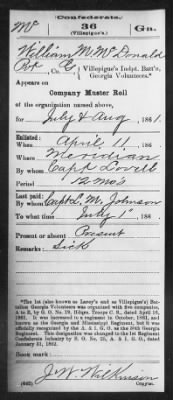 Mc
Confederate.
36
(Villepigue's)
Gn.
William M. McDonald
Pvt, Co. C, Villepigue's Indpt. Batt'n,
Georgia Volunteers.*
Appears on
Company Muster Roll
of the organization named above,
for July & Aug, 1861.
Enlisted:
When April 11, 186
Where Meridian
By whom Capt Lovell
Period 12 mos
Last paid:
By whom Capt L. M. Johnson
To what time July 1st, 186
Present or absent Present
Remarks: Sick
*The 1st (also known as Larey's and as Villepigue's) Battalion
Georgia Volunteers was organized with five companies,
A to E, by
It was increased to a regiment in October, 1861, and
known as the Georgia and Mississippi Regiment, but it was
officially recognized by the A. & I. G. O. as the 36th Georgia
Regiment. This designation was changed to the 1st
Confederate Infantry by S. O. No. 25, A. & I. G. O., dated
January 31, 1862.
Book mark:
J. W. Wilkinson
(642)
Copyist.